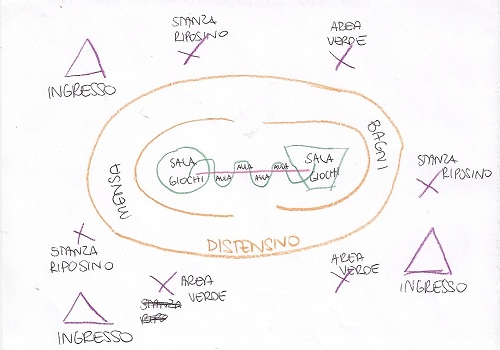 STANZA
RIPOSINO
AREA
VERDE
INGRESSO
BAGNI
SALA
GIOCHI
AULA
AULA
AULA
AULA
SALA
GIOCHI
MENSA
STANZA
RIPOSINO
STANZA
RIPOSINO
DISTENSINO
AREA
VERDE
STANZA
RIPO
AREA
VERDE
INGRESSO
INGRESSO